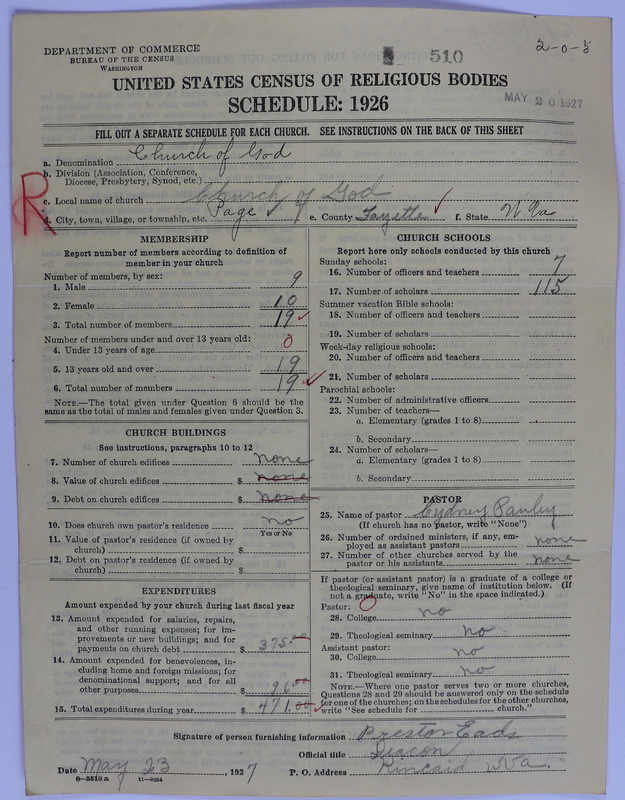 DEPARTMENT OF COMMERCE
BUREAU OF THE CENSUS
WASHINGTON
510
2-0-5
UNITED STATES CENSUS OF RELIGIOUS BODIES
SCHEDULE: 1926
MAY 26 1927
FILL OUT A SEPARATE SCHEDULE FOR EACH CHURCH. SEE INSTRUCTIONS ON THE BACK OF THIS SHEET
R
a. Denomination Church of God
b. Division (Association, Conference,
Diocese, Presbytery, Synod, etc.)
c. Local name of church Church of God
d. City, town, village, or township, etc. Page ✓ e. County Fayette ✓ f. State W Va
MEMBERSHIP
Report number of members according to definition of
member in your church
Number of members, by sex:
1. Male 9
2. Female 10
3. Total number of members 19 ✓
Number of members under and over 13 years old:
4. Under 13 years of age 0
5. 13 years old and over 19
6. Total number of members 19 ✓
NOTE.—The total given under Question 6 should be the
same as the total of males and females given under Question 3.
CHURCH BUILDINGS
See instructions, paragraphs 10 to 12
7. Number of church edifices none
8. Value of church edifices $ none
9. Debt on church edifices $ none
10. Does church own pastor's residence no
Yes or No
11. Value of pastor's residence (if owned by
church) $
12. Debt on pastor's residence (if owned by
church) $
EXPENDITURES
Amount expended by your church during last fiscal year
13. Amount expended for salaries, repairs,
and other running expenses; for im-
provements or new buildings; and for
payments on church debt $ 375.00
14. Amount expended for benevolences, in-
cluding home and foreign missions; for
denominational support; and for all
other purposes $ 96.00
15. Total expenditures during year $ 471.00 ✓
CHURCH SCHOOLS
Report here only schools conducted by this church
Sunday schools:
16. Number of officers and teachers 7
17. Number of scholars 115
Summer vacation Bible schools:
18. Number of officers and teachers
19. Number of scholars
Week-day religious schools:
20. Number of officers and teachers
21. Number of scholars
Parochial schools:
22. Number of administrative officers
23. Number of teachers—
a. Elementary (grades 1 to 8)
b. Secondary
24. Number of scholars—
a. Elementary (grades 1 to 8)
b. Secondary
PASTOR
25. Name of pastor Cydney Pauley
(If church has no pastor, write "None")
26. Number of ordained ministers, if any, em-
ployed as assistant pastors none
27. Number of other churches served by the
pastor or his assistants none
If pastor (or assistant pastor) is a graduate of a college or
theological seminary, give name of institution below. (If
not a graduate, write "No" in the space indicated.)
Pastor:
28. College no
29. Theological seminary no
Assistant pastor:
30. College no
31. Theological seminary no
NOTE.—Where one pastor serves two or more churches,
Questions 28 and 29 should be answered only on the schedule
for one of the churches; on the schedules for the other churches,
write "See schedule for church."
Signature of person furnishing information Preston Eads
Official title Deacon
Date May 23, 1927 P. O. Address Kincaid W Va.
8-5518 a 11-9054